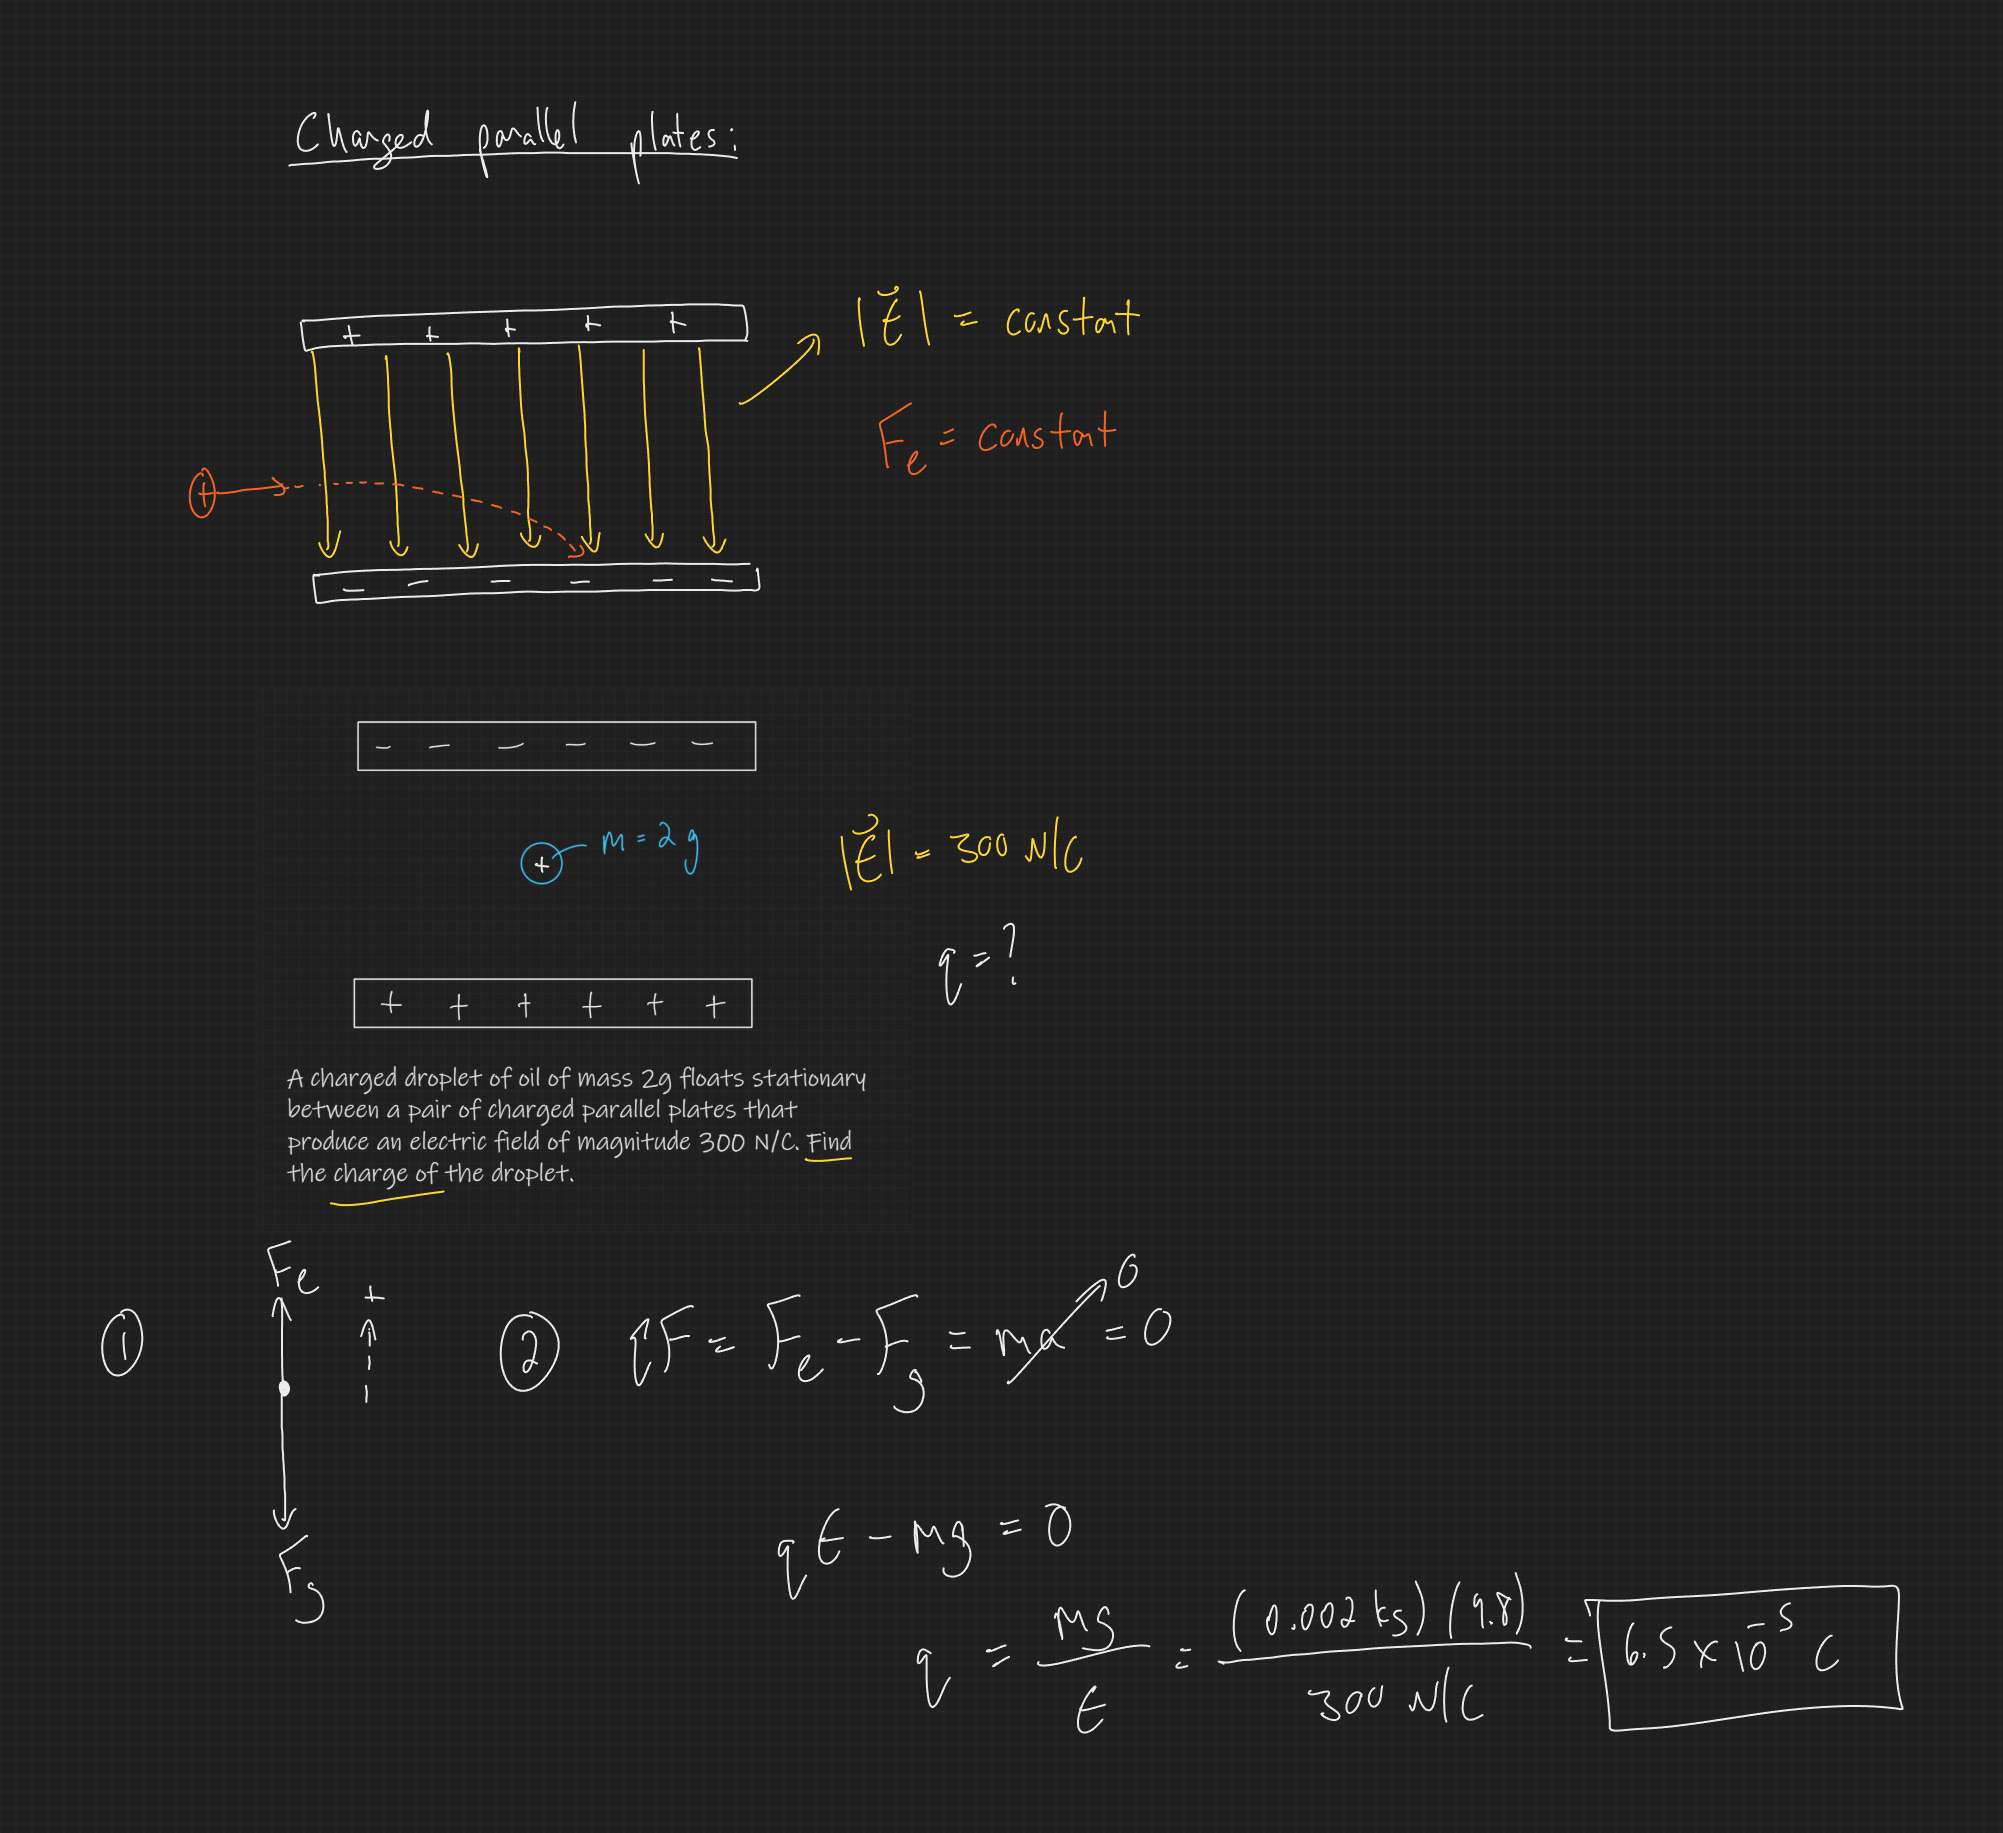 Charged parallel plates:
+ + + + +
|E⃗| = constant
Fe = constant
+
− − − − − −
− − − − − −
+ m = 2 g
|E⃗| = 300 N/C
q = ?
+ + + + + +
A charged droplet of oil of mass 2g floats stationary
between a pair of charged parallel plates that
produce an electric field of magnitude 300 N/C. Find
the charge of the droplet.
① Fe +
Fg
② qF = Fe − Fg = ma → 0 = 0
qE − mg = 0
q = mg/E = (0.002 kg)(9.8)/300 N/C = 6.5 × 10⁻⁵ C